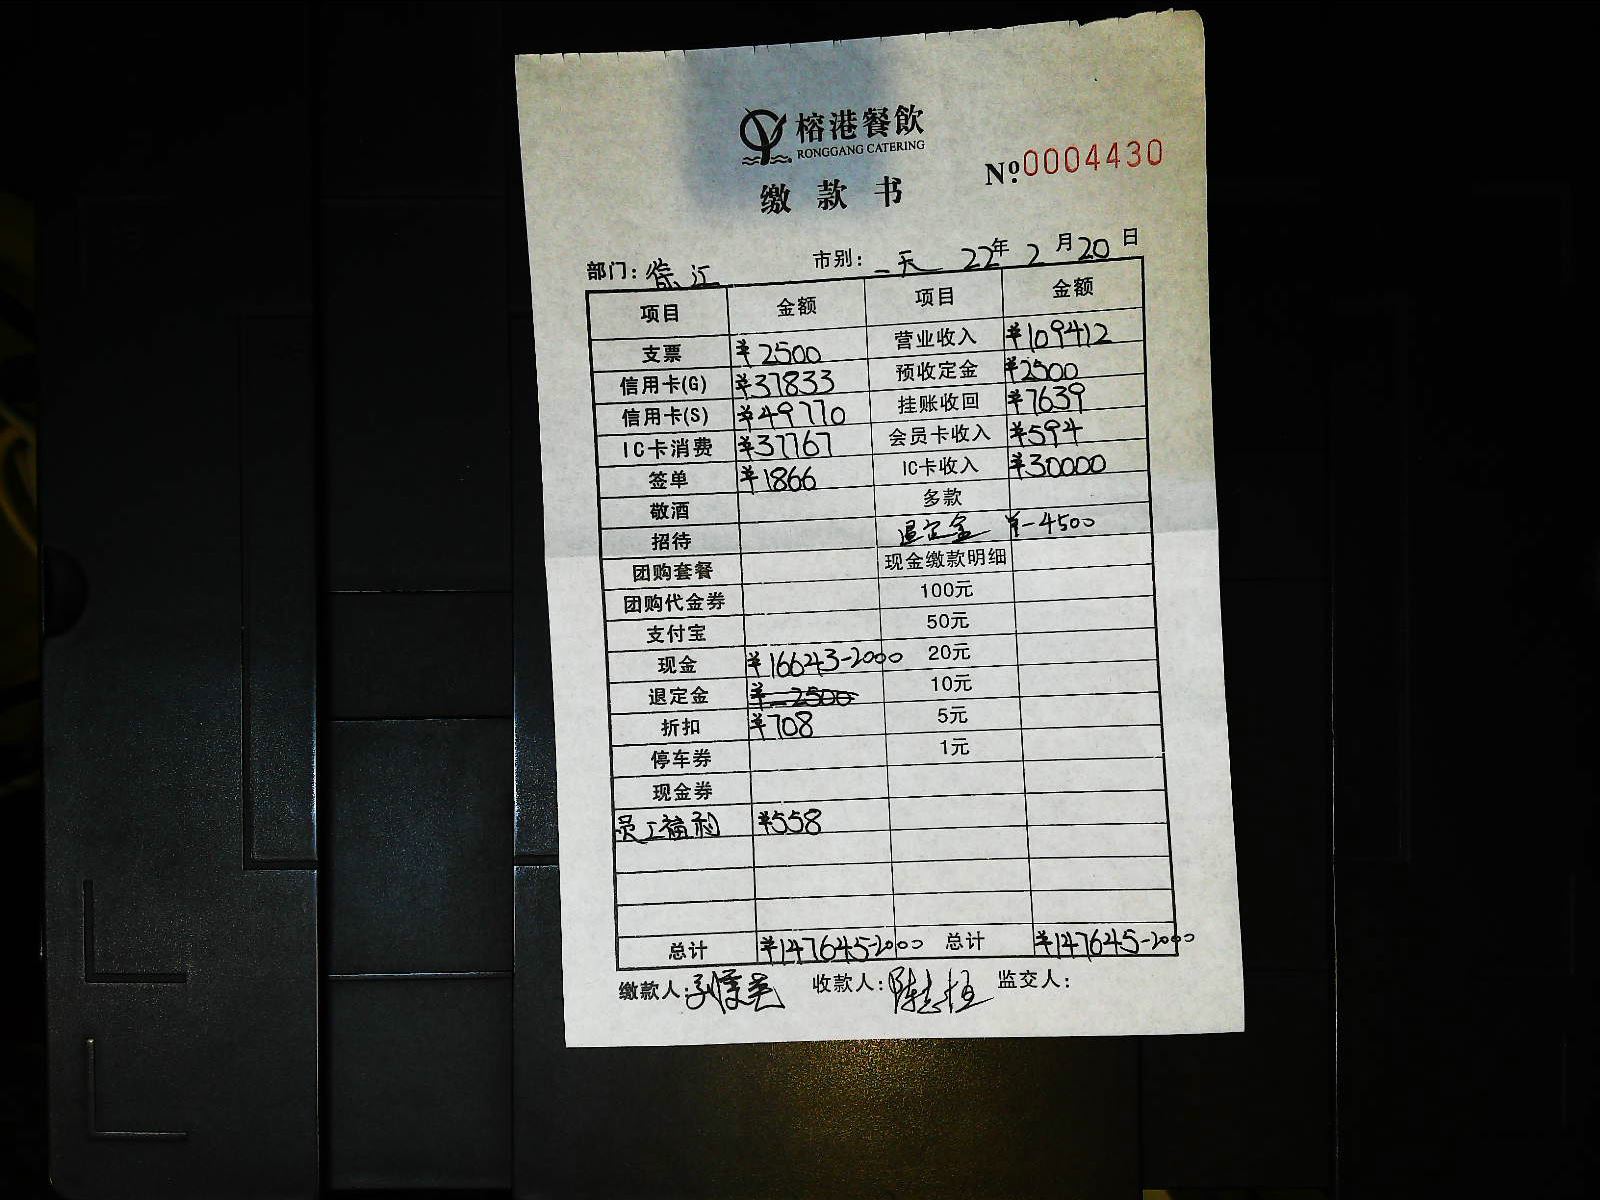 榕港餐飲
RONGGANG CATERING
Nº 0004430
缴款书
部门: 徐江 市别: 一天 22年2月20日
项目 金额 项目 金额
支票 ¥2500 营业收入 ¥109412
信用卡(G) ¥37833 预收定金 ¥2500
信用卡(S) ¥49770 挂账收回 ¥7639
IC卡消费 ¥37767 会员卡收入 ¥594
签单 ¥1866 IC卡收入 ¥30000
敬酒 多款
招待 退定金 ¥-4500
团购套餐 现金缴款明细
团购代金券 100元
支付宝 50元
现金 ¥16643-2000 20元
退定金 ¥-2500 10元
折扣 ¥708 5元
停车券 1元
现金券
员工福利 ¥558
总计 ¥147645-2000 总计 ¥147645-2000
缴款人: 收款人: 陈志恒 监交人: